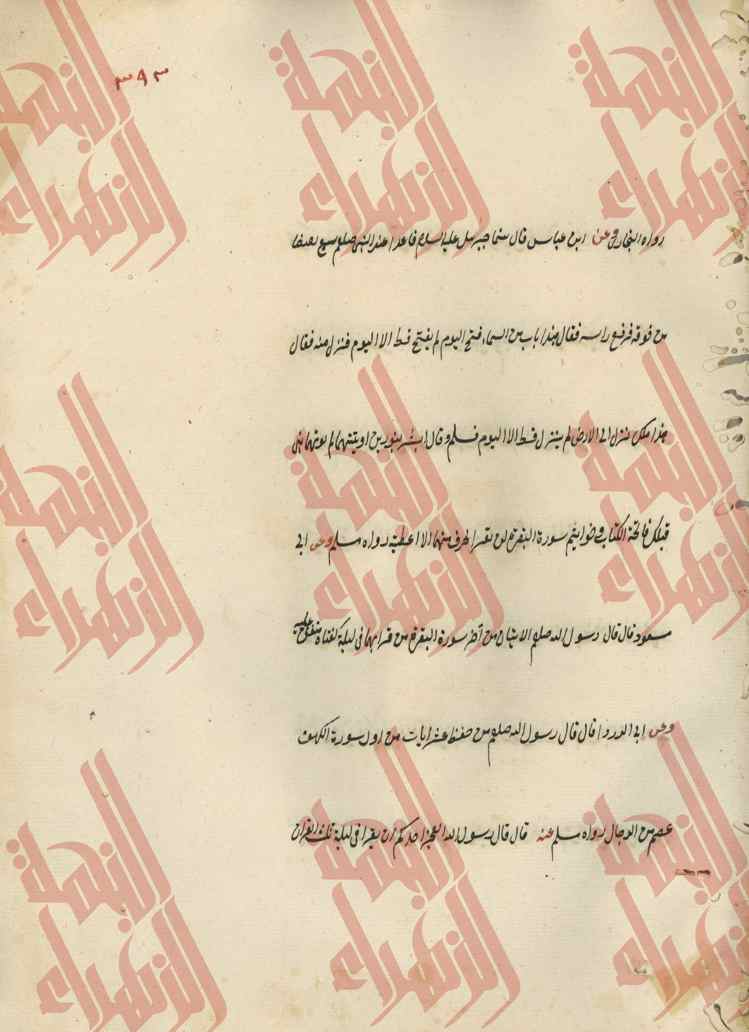 ٣٩٣
رواه البخاري وعن ابن عباس قال بينما جبريل عليه السلام قاعدا عند النبي صلعم سمع نقيضا
من فوقه فرفع راسه فقال هذا باب من السماء فتح اليوم لم يفتح قط الا اليوم فنزل منه فقال
هذا ملك نزل الى الارض لم ينزل قط الا اليوم فسلم وقال ابشر بنورين اوتيتهما لم يوتهما نبي
قبلك فاتحة الكتاب وخواتيم سورة البقرة لن تقرا بحرف منهما الا اعطيته رواه مسلم وعن ابي
مسعود قال قال رسول الله صلعم الايتان من آخر سورة البقرة من قرا بهما في ليلة كفتاه متفق عليه
وعن ابي الدردا قال قال رسول الله صلعم من حفظ عشر ايات من اول سورة الكهف
عصم من الدجال رواه مسلم وعنه قال قال رسول الله ايعجز احدكم ان يقرا في ليلة ثلث القران
النجمة الزهراء